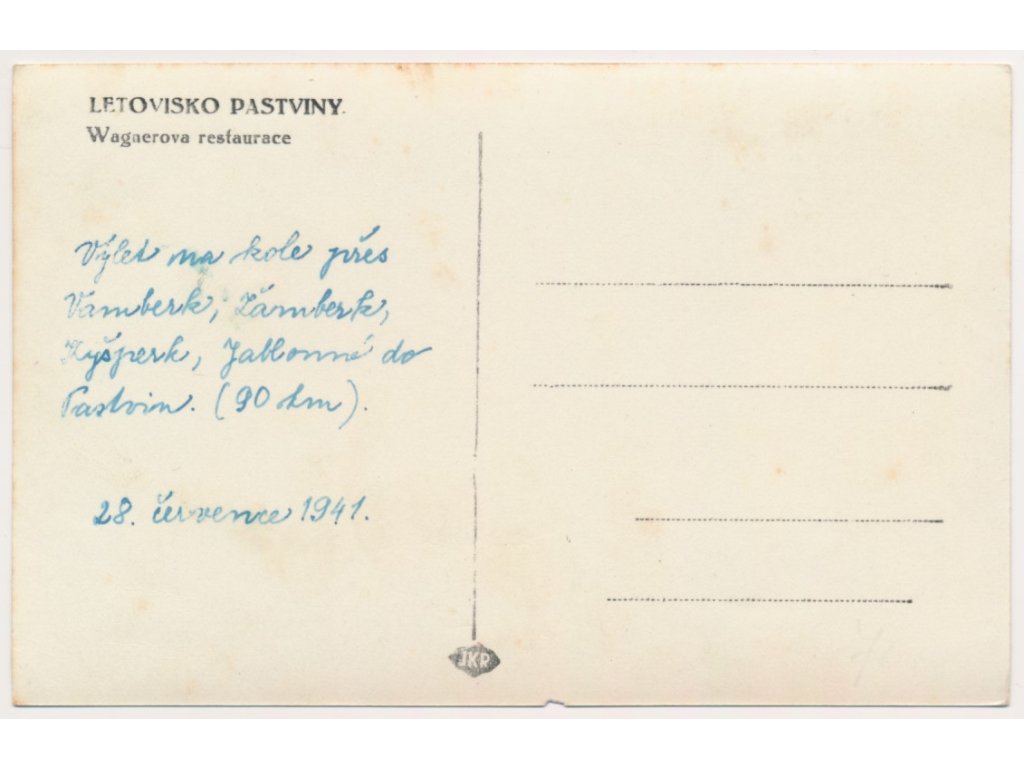 LETOVISKO PASTVINY.
Wagnerova restaurace
Výlet na kole přes
Vamberk, Žámberk,
Kyšperk, Jablonné do
Pastvin. (90 km).
28. července 1941.
JKP